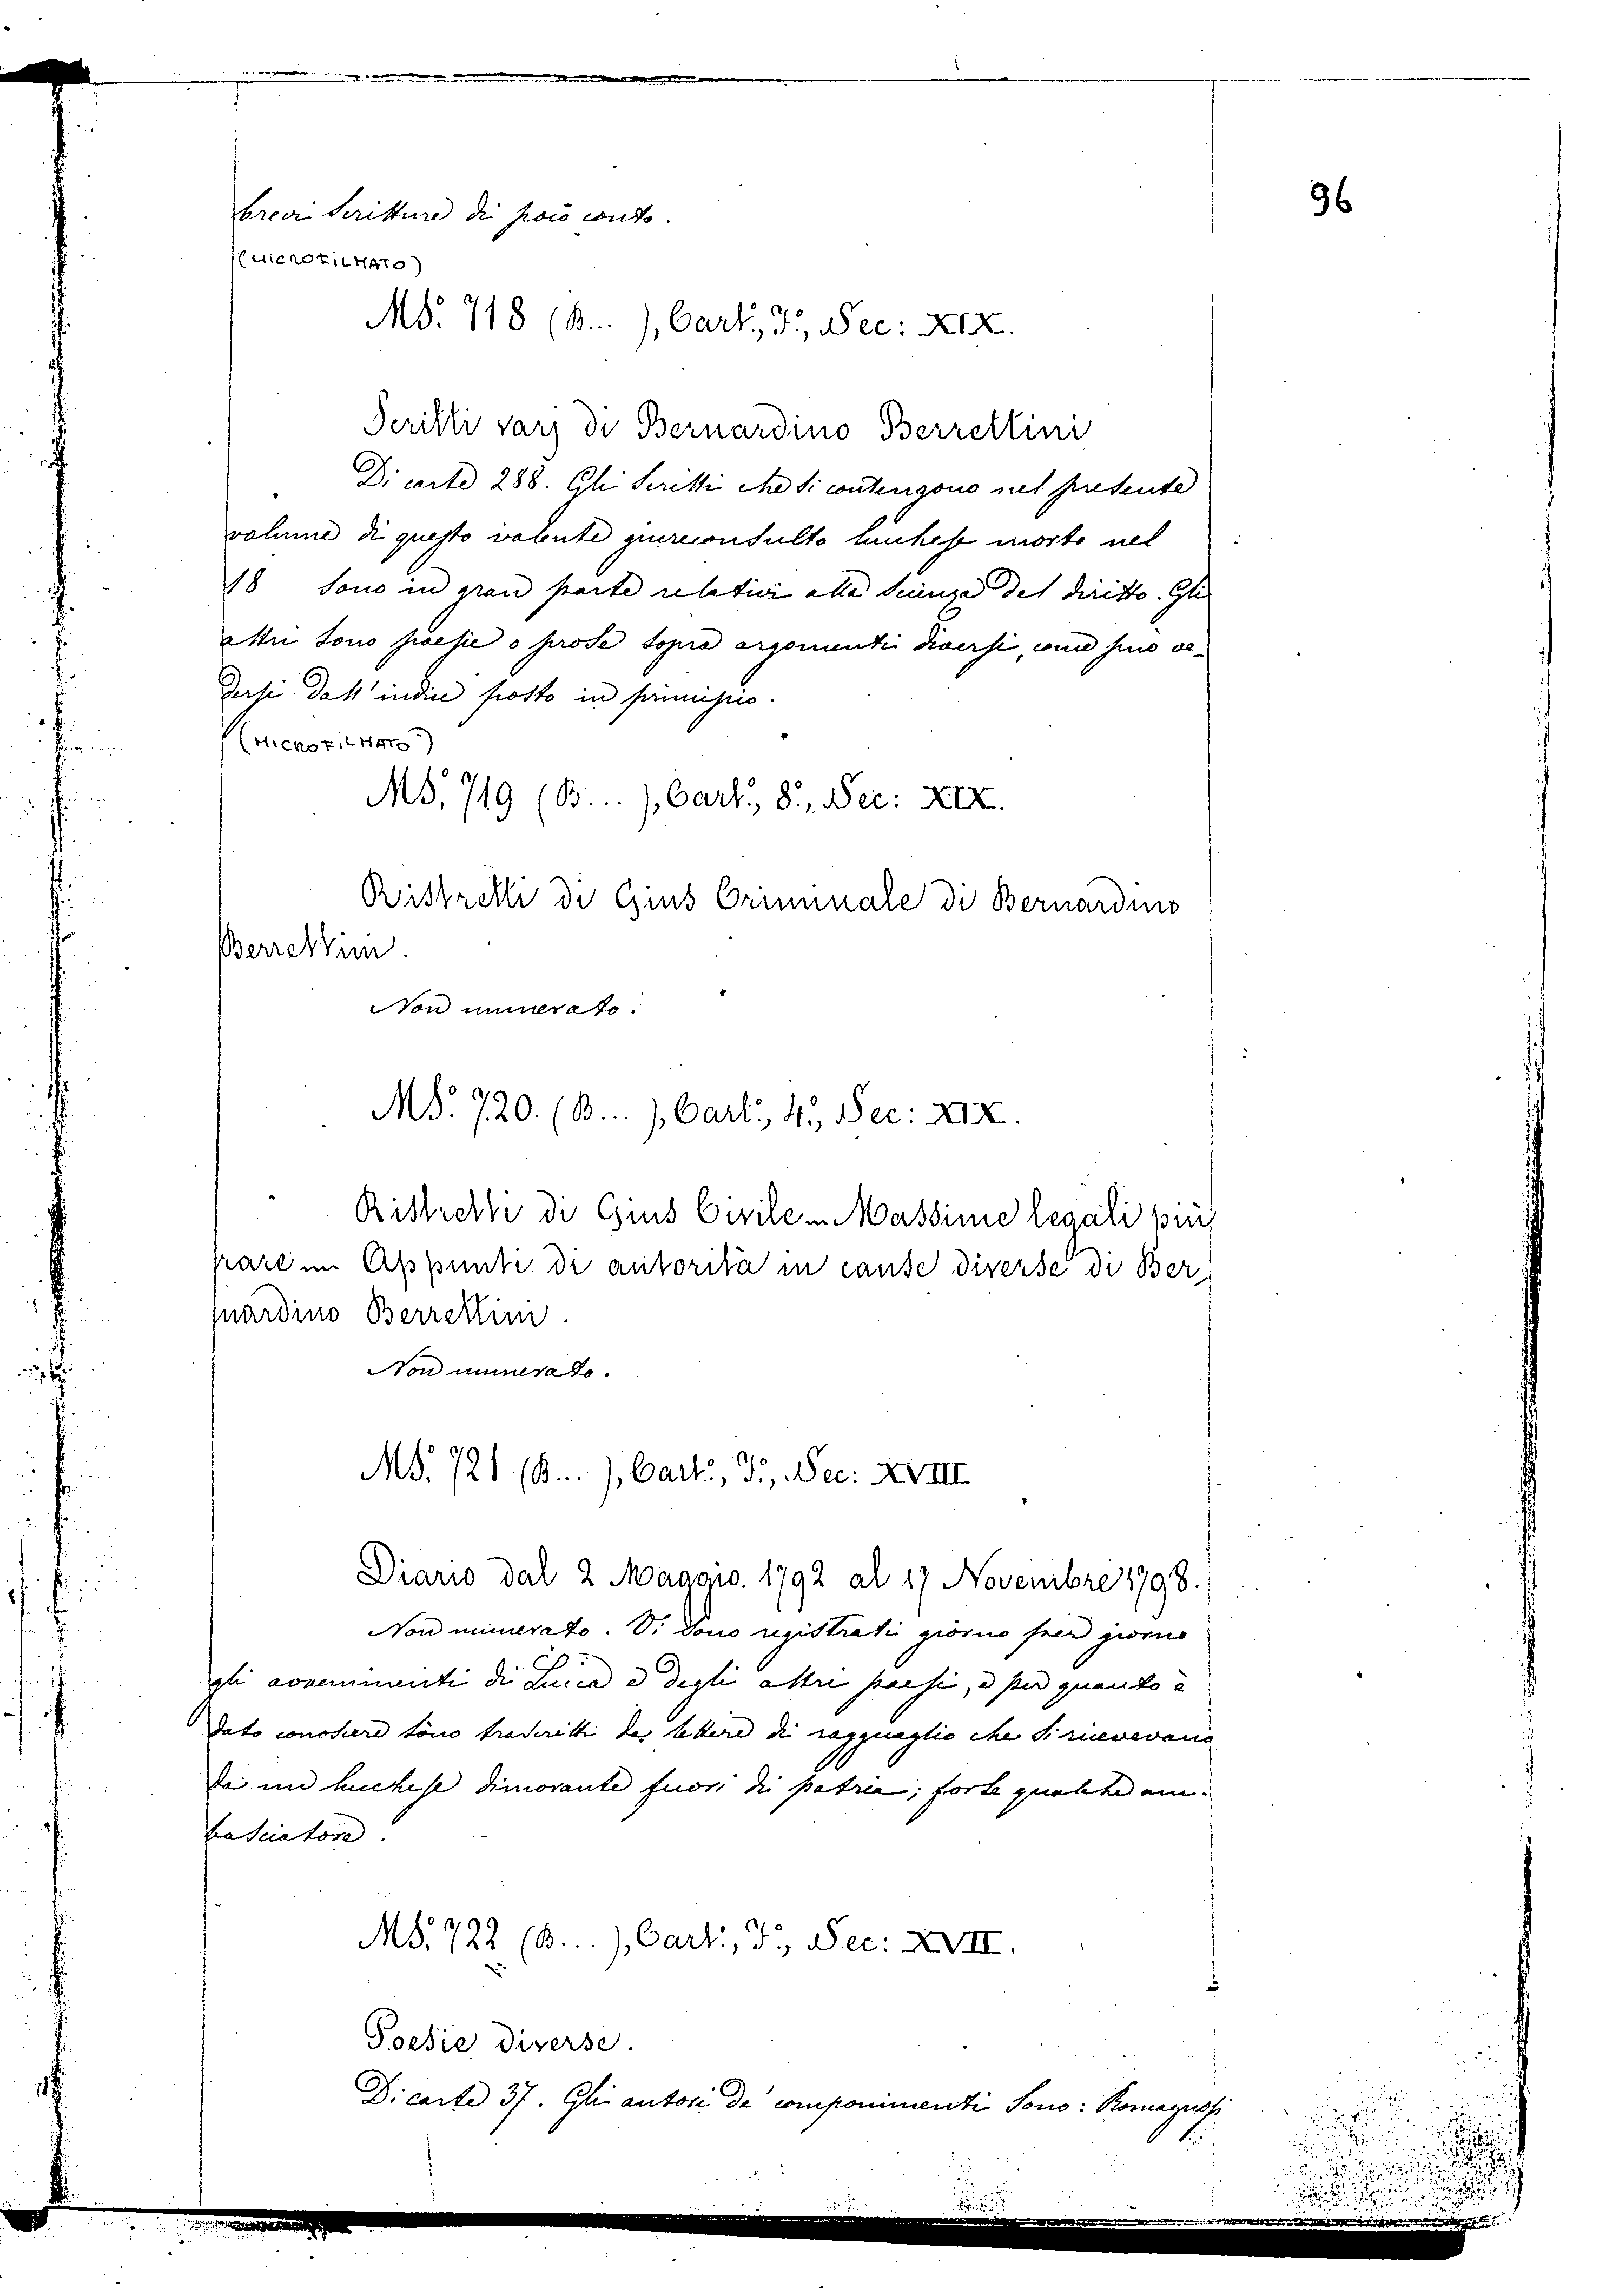 96
brevi scritture di poco conto.
(MICROFILMATO)
MS. 718 (B... ), Cart:, F:, Sec: XIX.
Scritti varj di Bernardino Berrettini
Di carte 288. Gli scritti che si contengono nel presente
volume di questo valente giureconsulto lucchese morto nel
18 sono in gran parte relativi alla scienza del diritto. Gli
altri sono poesie o prose sopra argomenti diversi, come può ve-
dersi dall'indice posto in principio.
(MICROFILMATO)
MS. 719 (B... ), Cart:, 8º, Sec: XIX.
Ristretti di Gius Criminale di Bernardino
Berrettini.
Non numerato.
MS. 720. (B... ), Cart:, 4º, Sec: XIX.
Ristretti di Gius Civile — Massime legali più
rare — Appunti di autorità in cause diverse di Ber-
nardino Berrettini.
Non numerato.
MS. 721 (B... ), Cart:, F:, Sec: XVIII
Diario dal 2 Maggio. 1792 al 17 Novembre 1798.
Non numerato. Vi sono registrati giorno per giorno
gli avvenimenti di Lucca e degli altri paesi, e per quanto è
dato conoscere sono trascritti da lettere di ragguaglio che si ricevevano
da un lucchese dimorante fuori di patria; forse qualche am-
basciatore.
MS. 722 (B... ), Cart:, F:, Sec: XVII.
Poesie diverse.
Di carte 37. Gli autori de' componimenti sono: Romagnesi